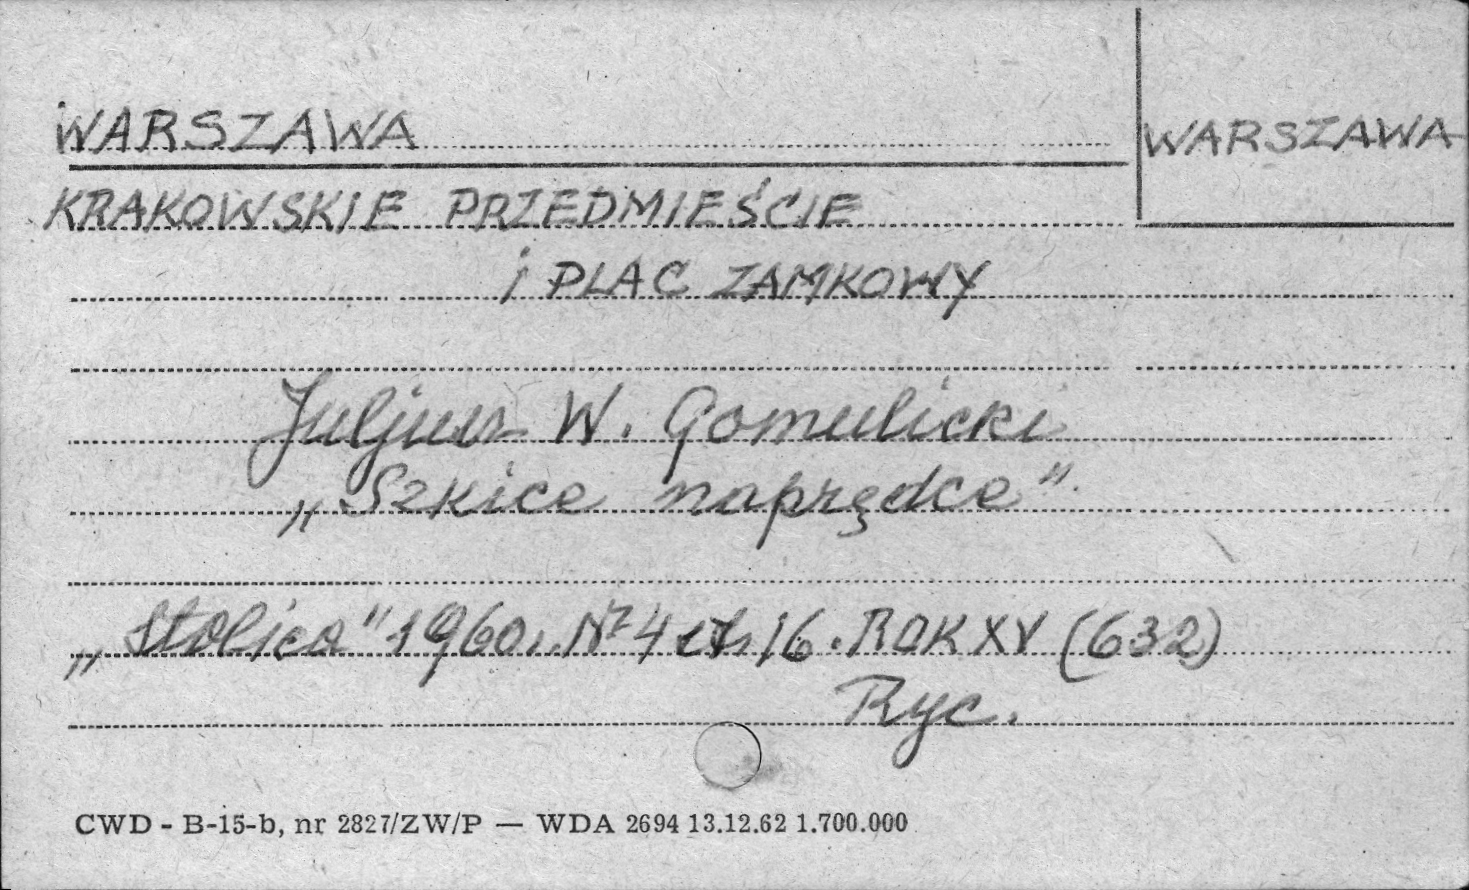 WARSZAWA
WARSZAWA
KRAKOWSKIE PRZEDMIEŚCIE
i PLAC ZAMKOWY
Juljusz W. Gomulicki
„Szkice naprędce”.
„Stolica” 1960. Nr 4 str 16. ROK XV (632)
Ryc.
CWD - B-15-b, nr 2827/ZW/P — WDA 2694 13.12.62 1.700.000